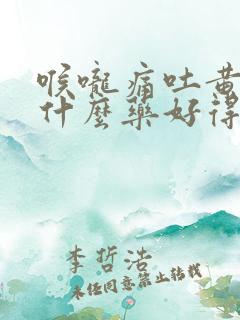 喉嚨痛吐黃
什麼藥好得
李哲浩
未经同意禁止转载